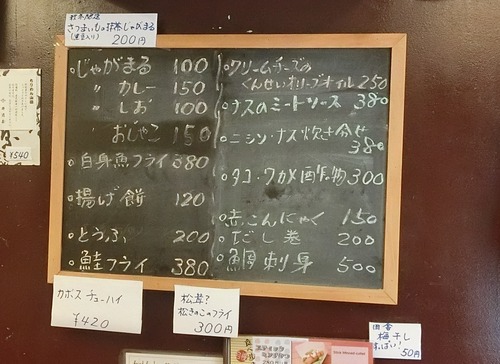 さつまいもの抹茶じゃがまる
200円
じゃがまる 100
〃 カレー 150
〃 しお 100
〃 おしゃこ 150
白身魚フライ 380
揚げ餅 120
とうふ 200
鮭フライ 380
クリームチーズの
くんせいオリーブオイル 250
ナスのミートソース 380
ニシン・ナス炊き合せ
380
タコ・ワカメ酢の物 300
玉こんにゃく 150
だし巻 200
鯛刺身 500
¥540
カボスチューハイ
¥420
松茸?
松きのこのフライ
300円
田舎
梅干し
すっぱい!
50円